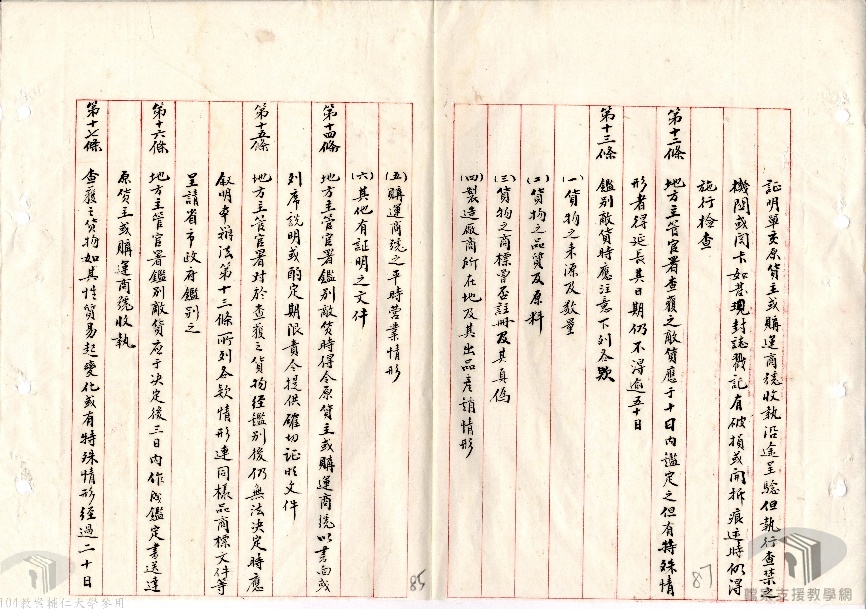 証明單交原貨主或購運商號收執沿途呈驗但執行查禁之
機關或関卡如甚現封誌戳記有破損或開拆痕迹時仍得
施行檢查
第十二條 地方主管官署查獲之敵貨應于十日内鑑定之但有特殊情
形者得延長其日期仍不得逾五十日
第十三條 鑑別敵貨時應注意下列各欵
(一)貨物之來源及数量
(二)貨物之品質及原料
(三)貨物之商標曾否註冊及其真偽
(四)製造廠商所在地及其出品產銷情形
(五)購運商號之平時營業情形
(六)其他有証明之文件
第十四條 地方主管官署鑑別敵貨時得令原貨主或購運商號以書面或
列席說明或酌定期限責令提供確切証明文件
第十五條 地方主管官署对於查獲之貨物經鑑別後仍無法决定時應
叙明本辦法第十三條所列各欵情形連同樣品商標文件等
呈請省市政府鑑別之
第十六條 地方主管官署鑑別敵貨应于决定後三日内作成鑑定書送達
原貨主或購運商號收執
第十七條 查獲之貨物如其性質易起变化或有特殊情形經過二十日
87
85
檔案支援教學網
104教案輔仁大學參用